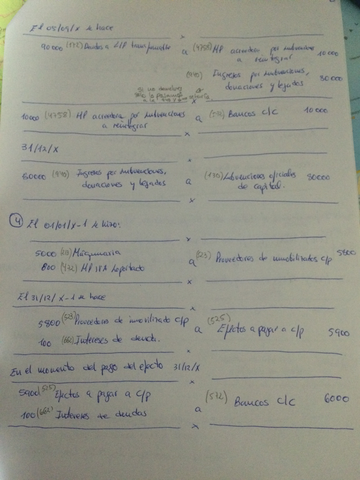 El 05/09/X se hace
x
90000 (172) Deudas a L/P transformables a (4758) HP acreedora por subvenciones a reintegrar 10000
(940) Ingresos por subvenciones, donaciones y legados 80000
x
10000 (4758) HP acreedora por subvenciones a reintegrar a (572) Bancos c/c 10000
x
31/12/X
x
80000 (940) Ingresos por subvenciones, donaciones y legados a (130) Subvenciones oficiales de capital. 80000
x
4 El 01/01/X-1 se hizo:
x
5000 (213) Máquinaria
800 (472) HP IVA Soportado a (523) Proveedores de inmovilizado c/p 5800
x
El 31/12/X-1 se hace
x
5800 (523) Proveedores de inmovilizado c/p a (525) Efectos a pagar a c/p 5900
100 (662) Intereses de deudas.
x
En el momento del pago del efecto 31/12/X
x
5900 (525) Efectos a pagar a c/p
100 (662) Intereses de deudas a (572) Bancos c/c 6000
x